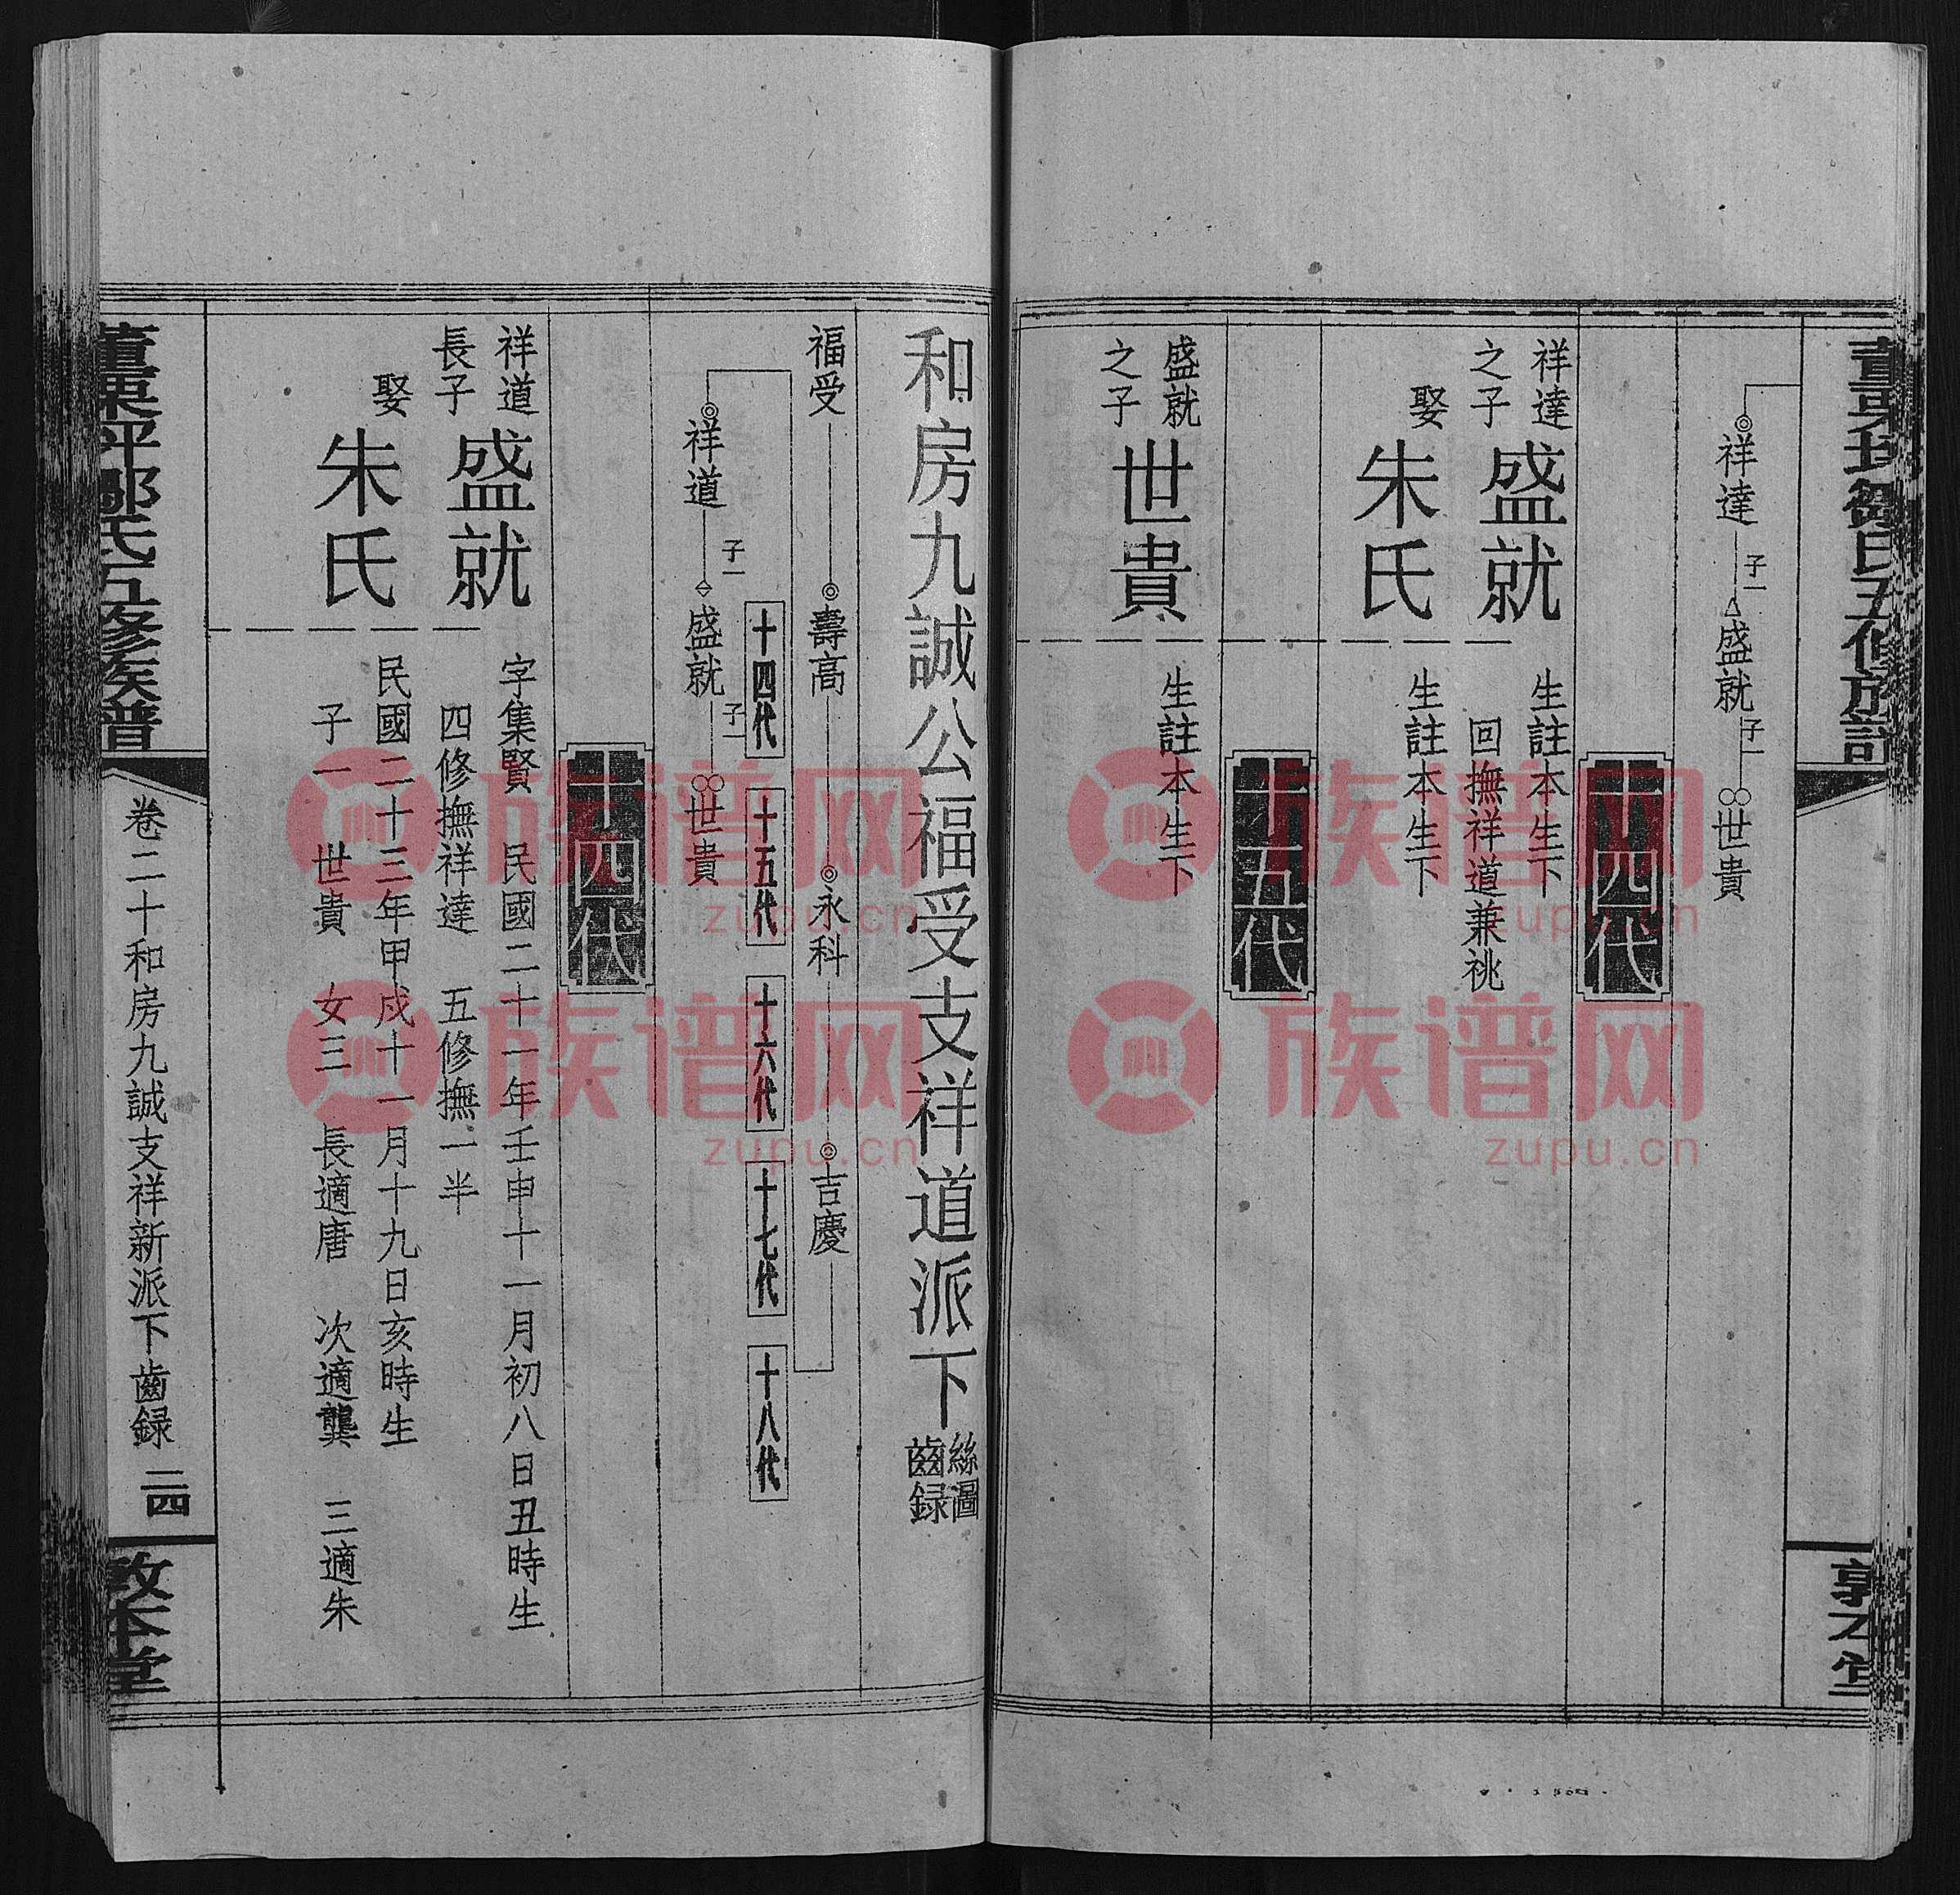 祥達
子一
盛就
子一
世貴
十四代
祥達
之子
盛就
生註本生下
回撫祥道兼祧
娶
朱氏
生註本生下
十五代
盛就
之子
世貴
生註本生下
和房九誠公福受支祥道派下
絲圖
齒録
福受
壽高
永科
吉慶
十四代
十五代
十六代
十七代
十八代
祥道
子一
盛就
子一
世貴
十四代
祥道
長子
盛就
字集賢 民國二十一年壬申十一月初八日丑時生
四修撫祥達 五修撫一半
娶
朱氏
民國二十三年甲戍十一月十九日亥時生
子一 世貴 女三 長適唐 次適龔 三適朱
氏五修族譜
卷二十和房九誠支祥新派下齒録
二四
敦本堂
族谱网
zupu.cn
族谱网
zupu.cn
族谱网
zupu.cn
族谱网
zupu.cn